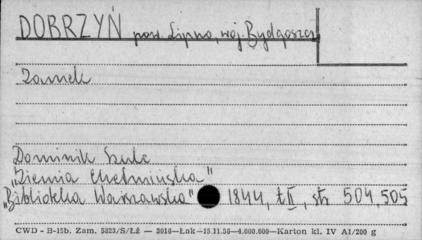 DOBRZYŃ pow. Lipno, woj. Bydgoszcz
Zamek
Dominik Szulc
"Ziemia Chełmińska"
"Biblioteka Warszawska" 1844, t. II, str. 504, 505
CWD - B-15b. Zam. 5823/S/Łź — 3016—Łak—15.11.56—4.000.000—Karton kl. IV A1/200 g